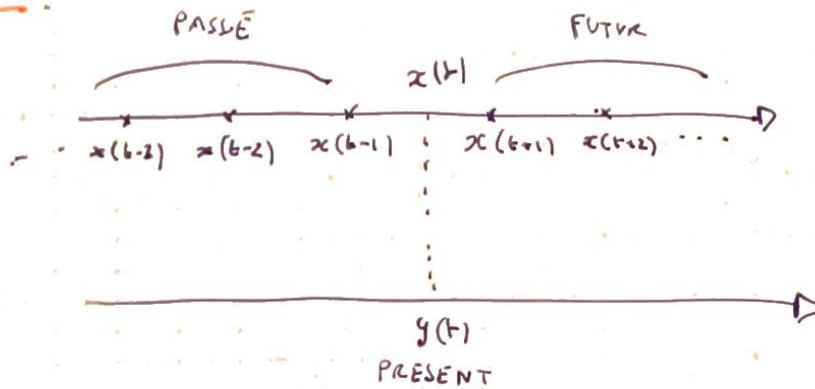 PASSÉ FUTUR
x(t)
x(t-3) x(t-2) x(t-1) x(t+1) x(t+2) ...
y(t)
PRESENT